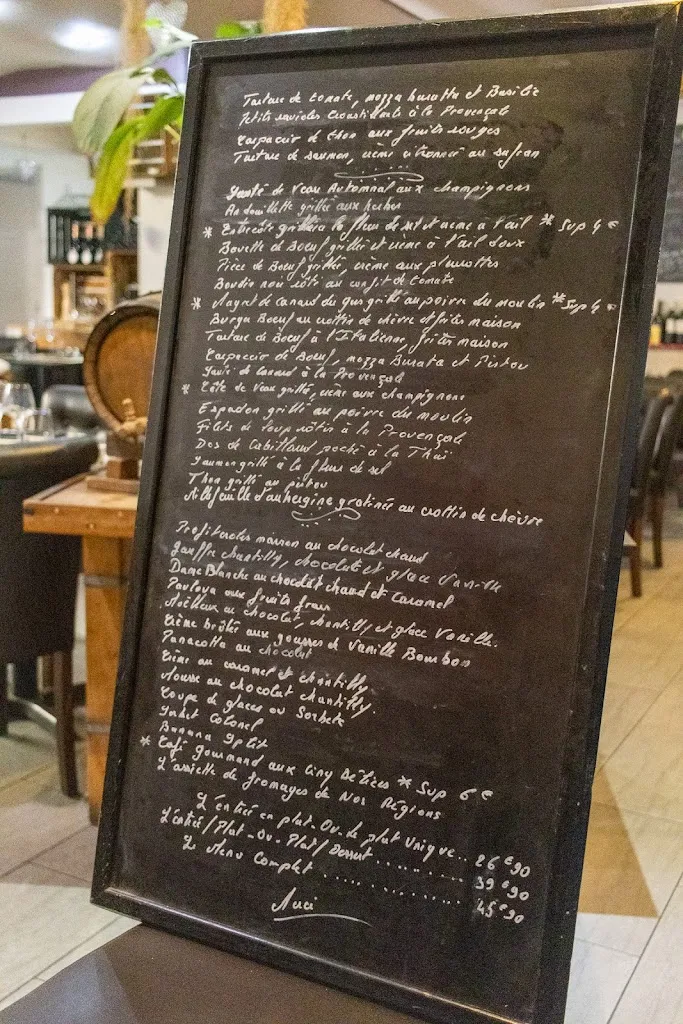 Tartare de tomate, mozza buratta et Basilic
Petits ravioles Croustillants à la Provençale
Carpaccio de thon aux fruits rouges
Tartare de saumon, crème citronnée au safran
Sauté de Veau Automnal aux champignons
Andouillette grillée aux herbes
* Entrecôte grillée à la fleur de sel et crème à l'ail * Sup 4 €
Bavette de Boeuf grillée et crème à l'ail doux
Pièce de Boeuf grillée, crème aux pleurottes
Boudin noir rôti au confit de tomate
* Magret de canard du gers grillé au poivre du moulin * Sup 4 €
Burger Boeuf au crottin de chèvre et frites maison
Tartare de Boeuf à l'Italienne, frites maison
Carpaccio de Boeuf, mozza Burata et Pistou
de Canard à la Provençale
* Côte de Veau grillée, crème aux champignons
Espadon grillé au poivre du moulin
Filets de loup rôtin à la Provençale
Dos de Cabillaud poché à la Thaï
Saumon grillé à la fleur de sel
Thon grillé au pistou
Millefeuille d'aubergine gratinée au crottin de chèvre
Profiteroles maison au chocolat chaud
gauffre chantilly, chocolat et glace Vanille
Dame Blanche au chocolat chaud et Caramel
Pavlova aux fruits frais
Moëlleux au chocolat, chantilly et glace Vanille.
Crème brûlée aux gousses de Vanille Bourbon
Panacotta au chocolat
Crème au caramel et chantilly
Mousse au chocolat chantilly.
Coupe de glaces ou Sorbets
Sorbet Colonel
Banana Split
* Café gourmand aux Cinq Bétises * Sup 6 €
L'assiette de fromages de Nos Régions
L'entrée en plat-Ou-le plat Unique... 26 €90
L'entrée/Plat-Ou-Plat/Dessert .......... 39 €90
Le Menu Complet ................ 45 €90
Merci